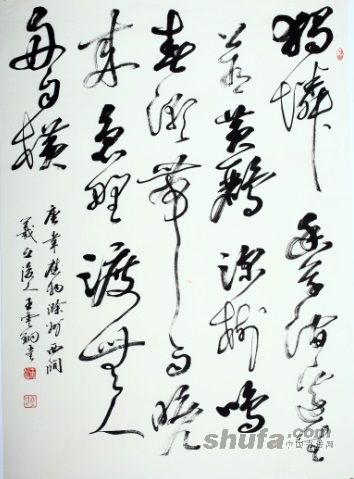 獨憐幽草澗邊生
上有黄鸝深樹鳴
春潮帶雨晚
來急野渡無人
舟自橫
唐韋應物滁州西澗
羲之後人王雲書
shufa.com
中国书法网